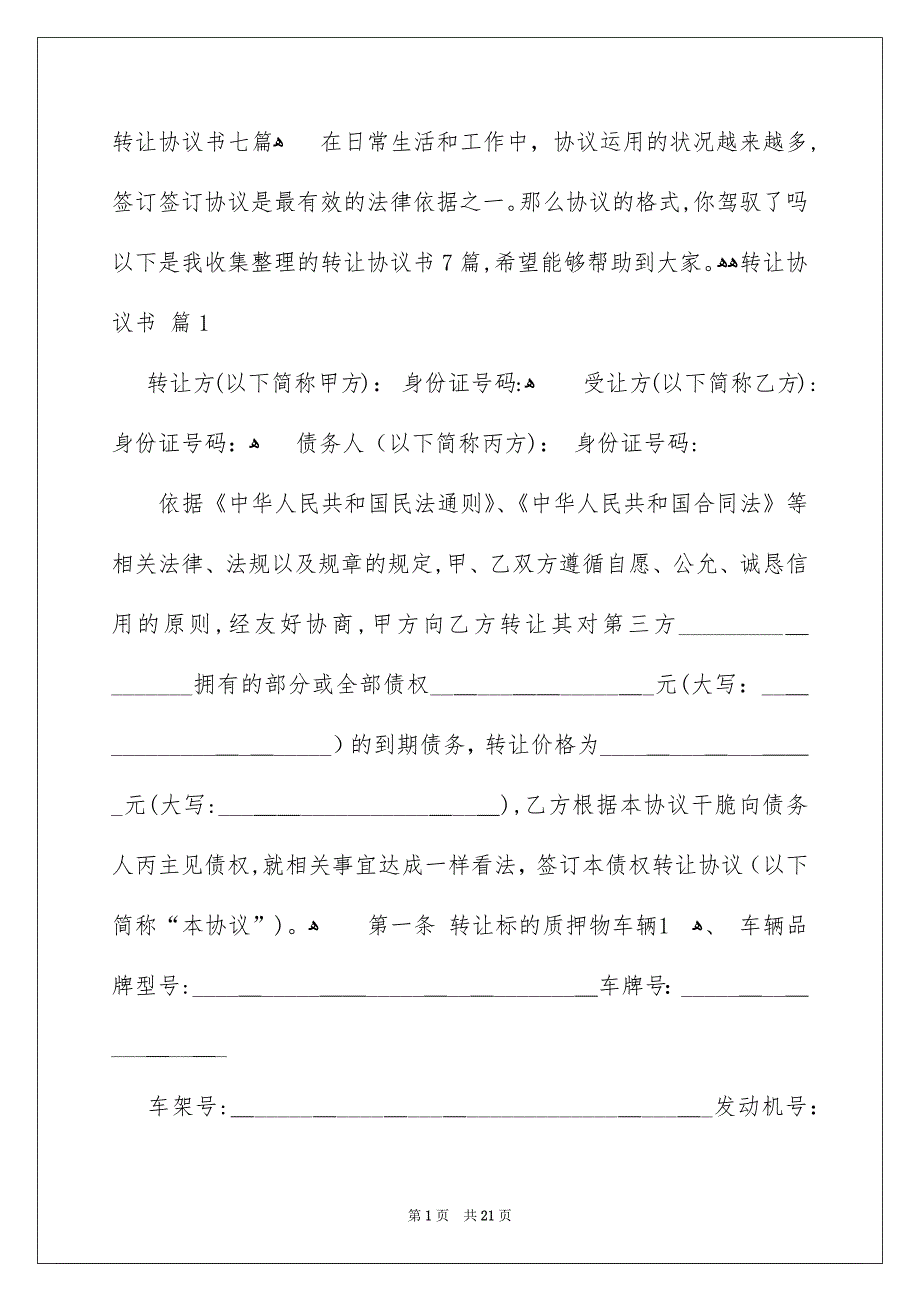 转让协议书七篇ﻫ 在日常生活和工作中，协议运用的状况越来越多，
签订签订协议是最有效的法律依据之一。那么协议的格式,你驾驭了吗
以下是我收集整理的转让协议书7篇,希望能够帮助到大家。ﻫﻫ转让协
议书 篇1
转让方(以下简称甲方)： 身份证号码:ﻫ 受让方(以下简称乙方):
身份证号码：ﻫ 债务人（以下简称丙方)： 身份证号码:
依据《中华人民共和国民法通则》、《中华人民共和国合同法》等
相关法律、法规以及规章的规定,甲、乙双方遵循自愿、公允、诚恳信
用的原则,经友好协商,甲方向乙方转让其对第三方___________
_______拥有的部分或全部债权___________________元(大写：____
___________________）的到期债务，转让价格为__________________
_元(大写:________________________),乙方根据本协议干脆向债务
人丙主见债权,就相关事宜达成一样看法，签订本债权转让协议（以下
简称“本协议”)。ﻫ 第一条 转让标的质押物车辆1ﻫ、 车辆品
牌型号:___________________________________车牌号：___________
__________
车架号:_________________________________________发动机号：
第1页 共21页